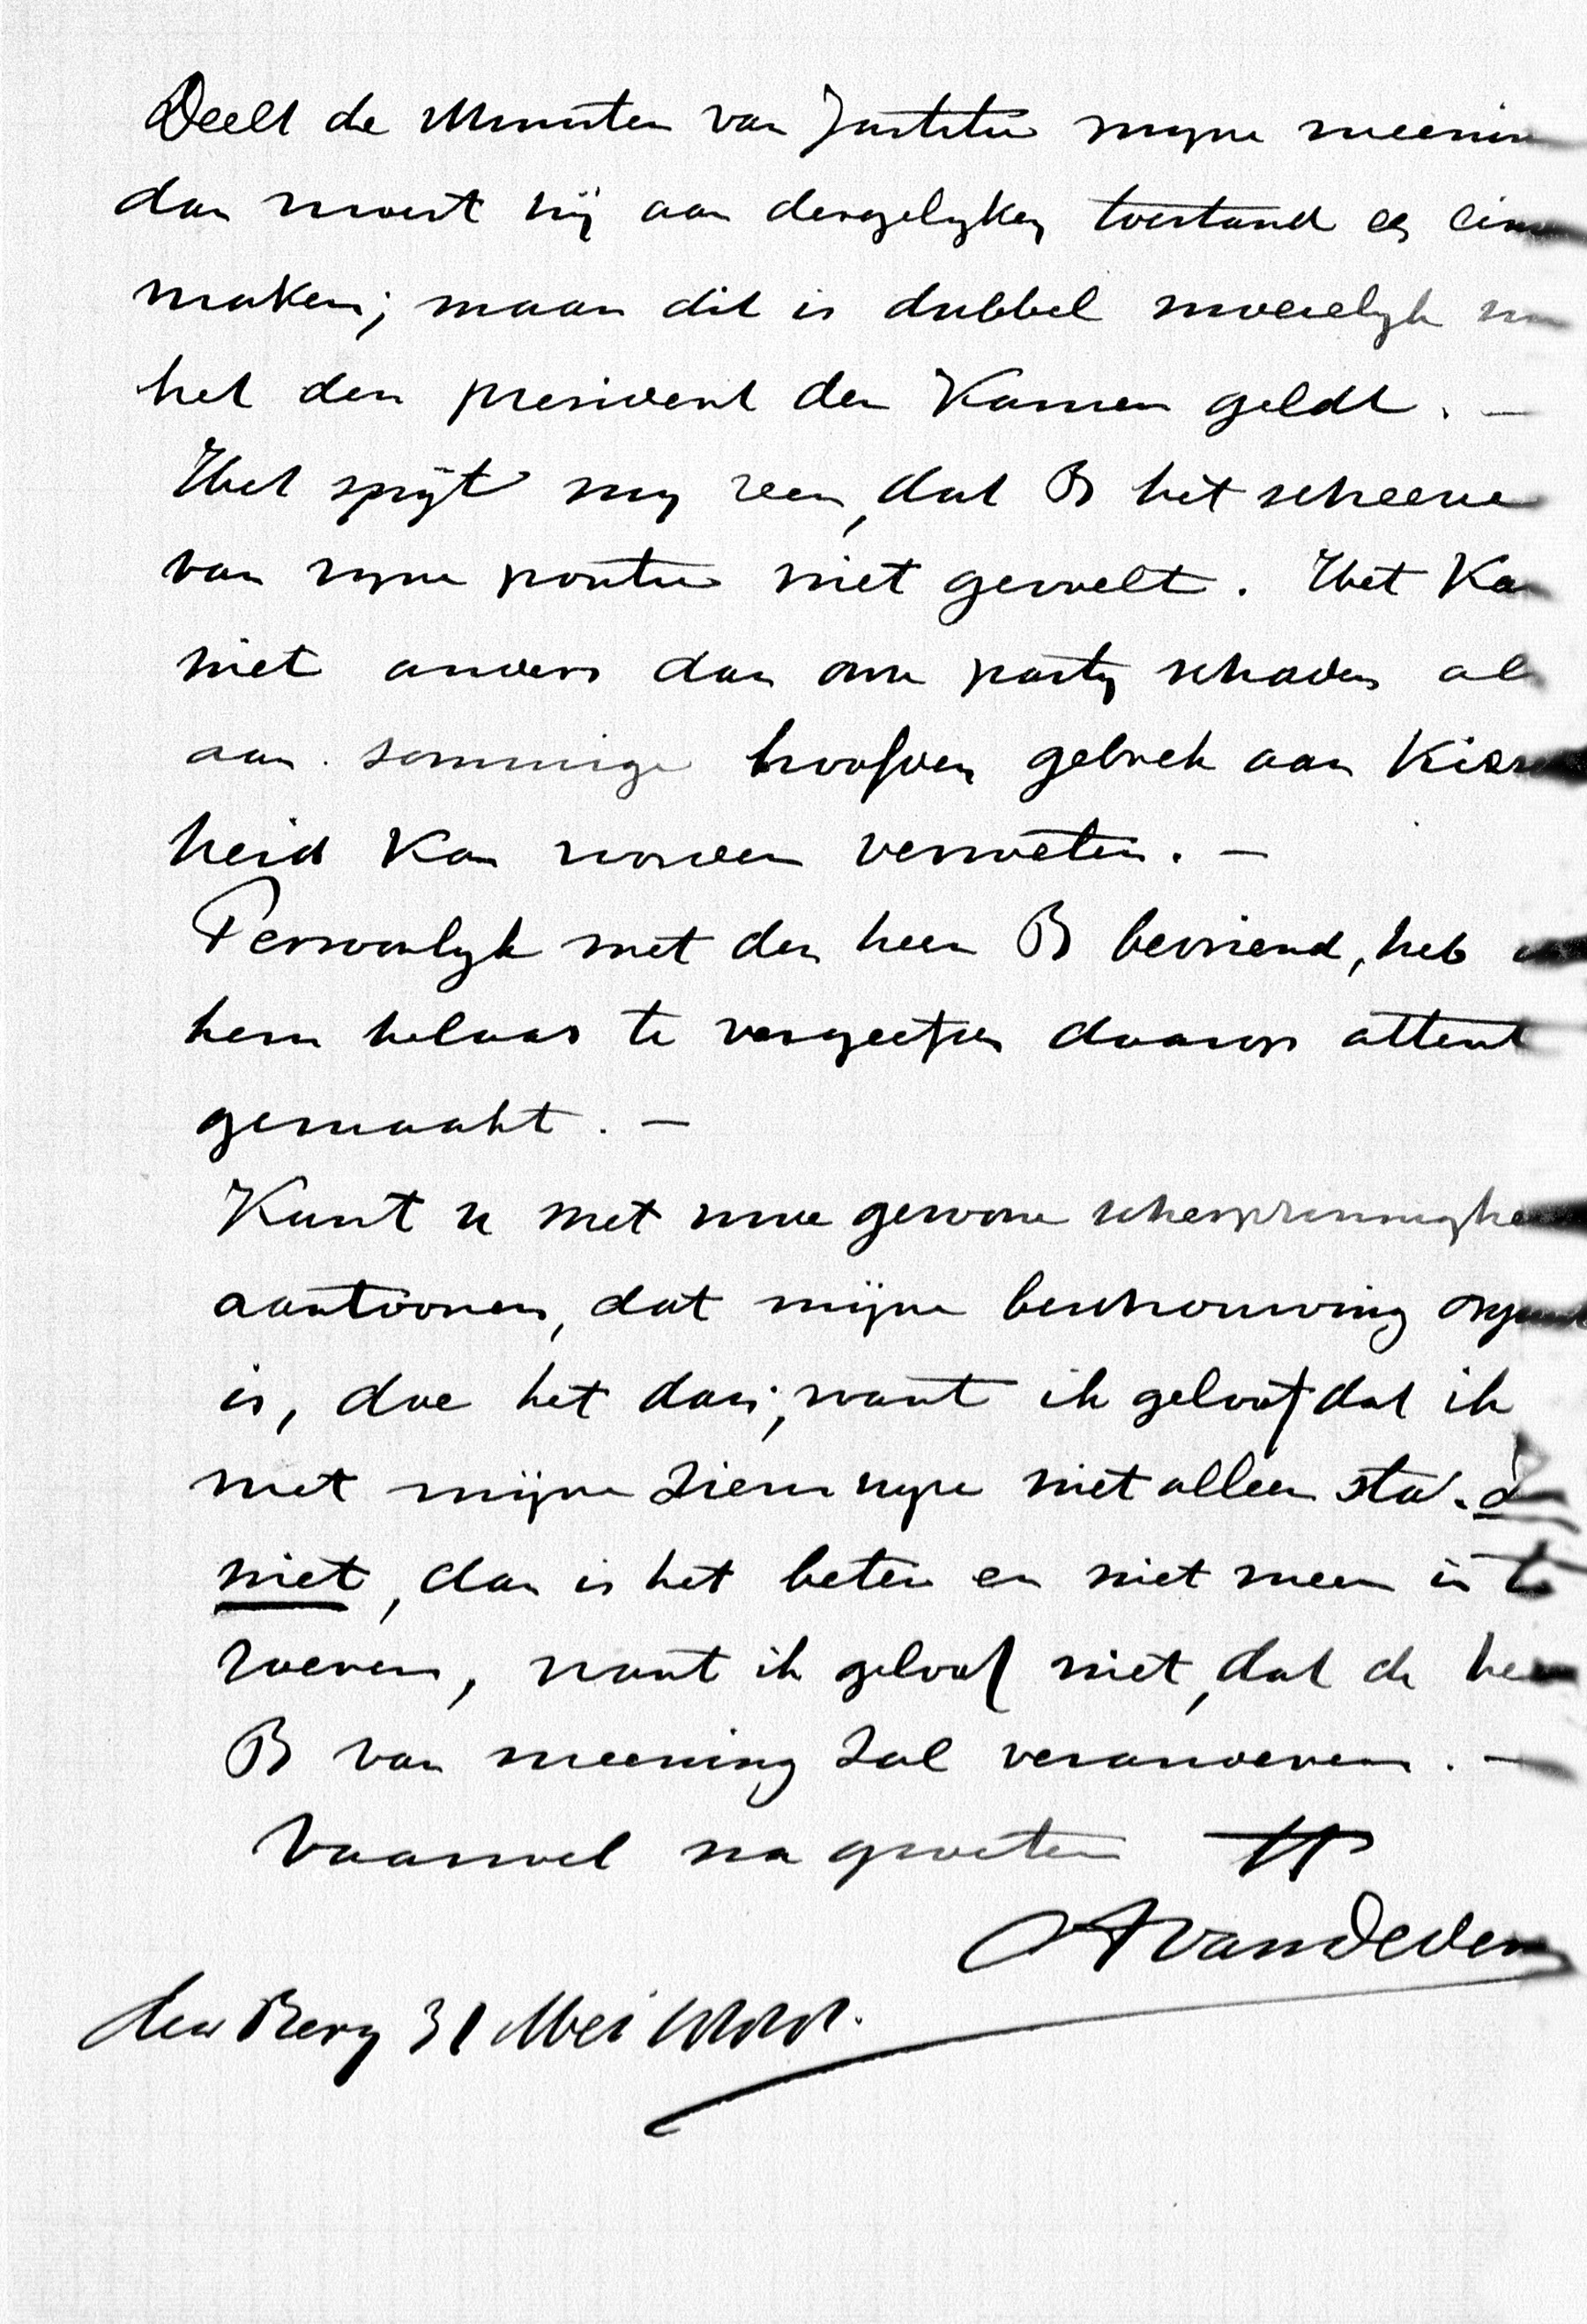 Deelt de Minister van Justitie myne meenin
dan moest hij aan dergelyken toestand een ein
maken; maar dit is dubbel moeielyk nu
het den president der Kamer geldt. —
Het spijt my zeer, dat B het scheeve
van zyne positie niet gevoelt. Het Kan
niet anders dan onze party schaden als
aan sommige hoofden gebrek aan Kiesch
heid Kan worden verweten. —
Persoonlyk met den heer B bevriend, heb
hem helaas te vergeefs daarop attent
gemaakt. —
Kunt u met uwe gewone scherpzinnighe
aantoonen, dat mijne beschouwing onjuist
is, doe het dan; want ik geloof dat ik
met mijne zienswyze niet alleen sta.
niet, dan is het beter er niet meer in te
roeren, want ik geloof niet, dat de heer
B van meening zal veranderen. —
Vaarwel na groeten
A van Dedem
den Berg 31 Mei